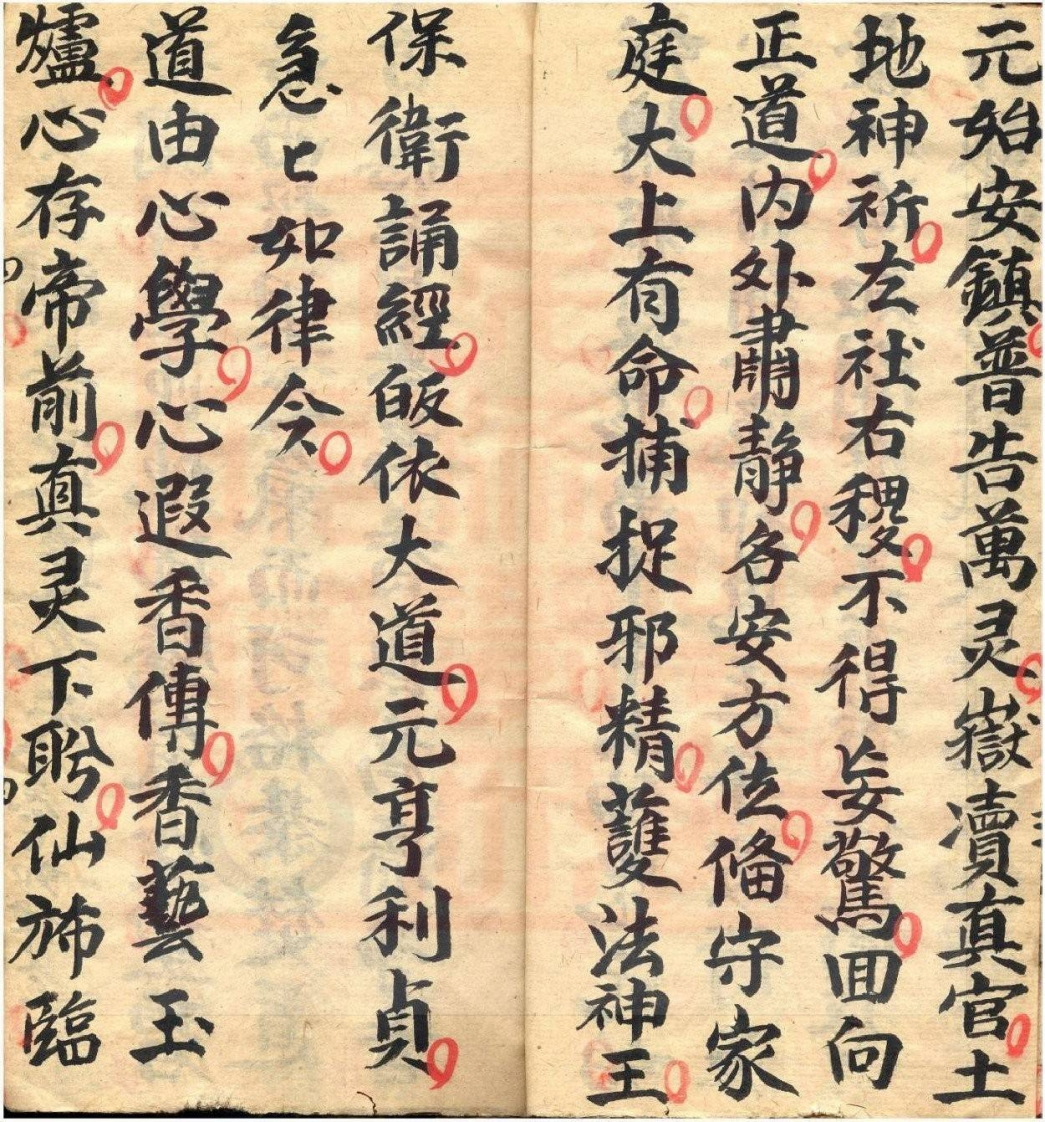 元始安鎮普告萬灵嶽瀆真官土
地神祈左社右稷不得妄驚回向
正道内外肅静各安方位俻守家
庭大上有命捕捉耶精護法神王
保衛誦經皈依大道元亨利貞
急〻如律令
道由心學心遐香傳香藝玉
爐心存帝前真灵下盼仙斾臨